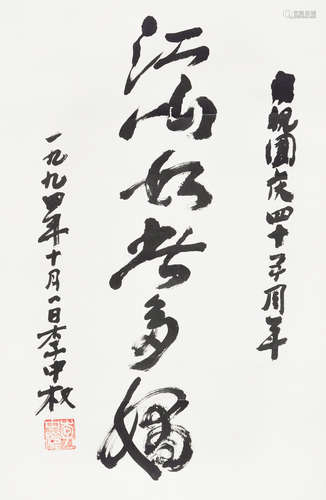 庆祝国庆四十五周年
江山如此多娇
一九九四年十月一日李中权